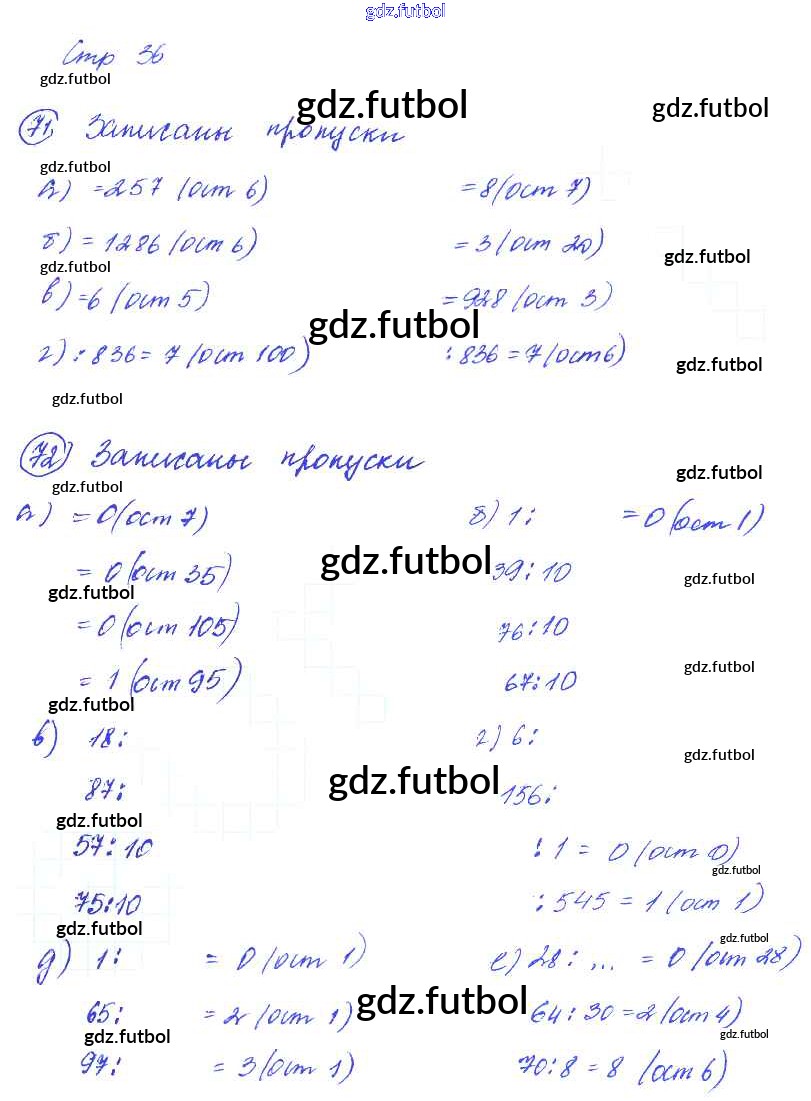 gdz.futbol
Стр 36
gdz.futbol
gdz.futbol gdz.futbol
71) Записаны пропуски
gdz.futbol
а) =257 (ост 6) =8(ост 7)
б) = 1286 (ост 6) = 3 (ост 20)
gdz.futbol gdz.futbol
в) =6 (ост 5) =928 (ост 3)
gdz.futbol
г) : 836 = 7 (ост 100) : 836 = 7 (ост 6)
gdz.futbol
gdz.futbol
72) Записаны пропуски
gdz.futbol
gdz.futbol
а) = 0(ост 7) б) 1: = 0 (ост 1)
gdz.futbol
= 0 (ост 35) 39:10
gdz.futbol gdz.futbol
= 0 (ост 105) 76:10
gdz.futbol
= 1 (ост 95) 67:10
gdz.futbol
в) 18: г) 6:
gdz.futbol
87: gdz.futbol 156:
gdz.futbol
57:10 : 1 = 0 (ост 0)
gdz.futbol
75:10 : 545 = 1 (ост 1)
gdz.futbol gdz.futbol
д) 1: = 0 (ост 1) е) 28: ... = 0 (ост 28)
gdz.futbol
65: = 2 (ост 1) 64:30 = 2 (ост 4)
gdz.futbol gdz.futbol
97: = 3 (ост 1) 70:8 = 8 (ост 6)